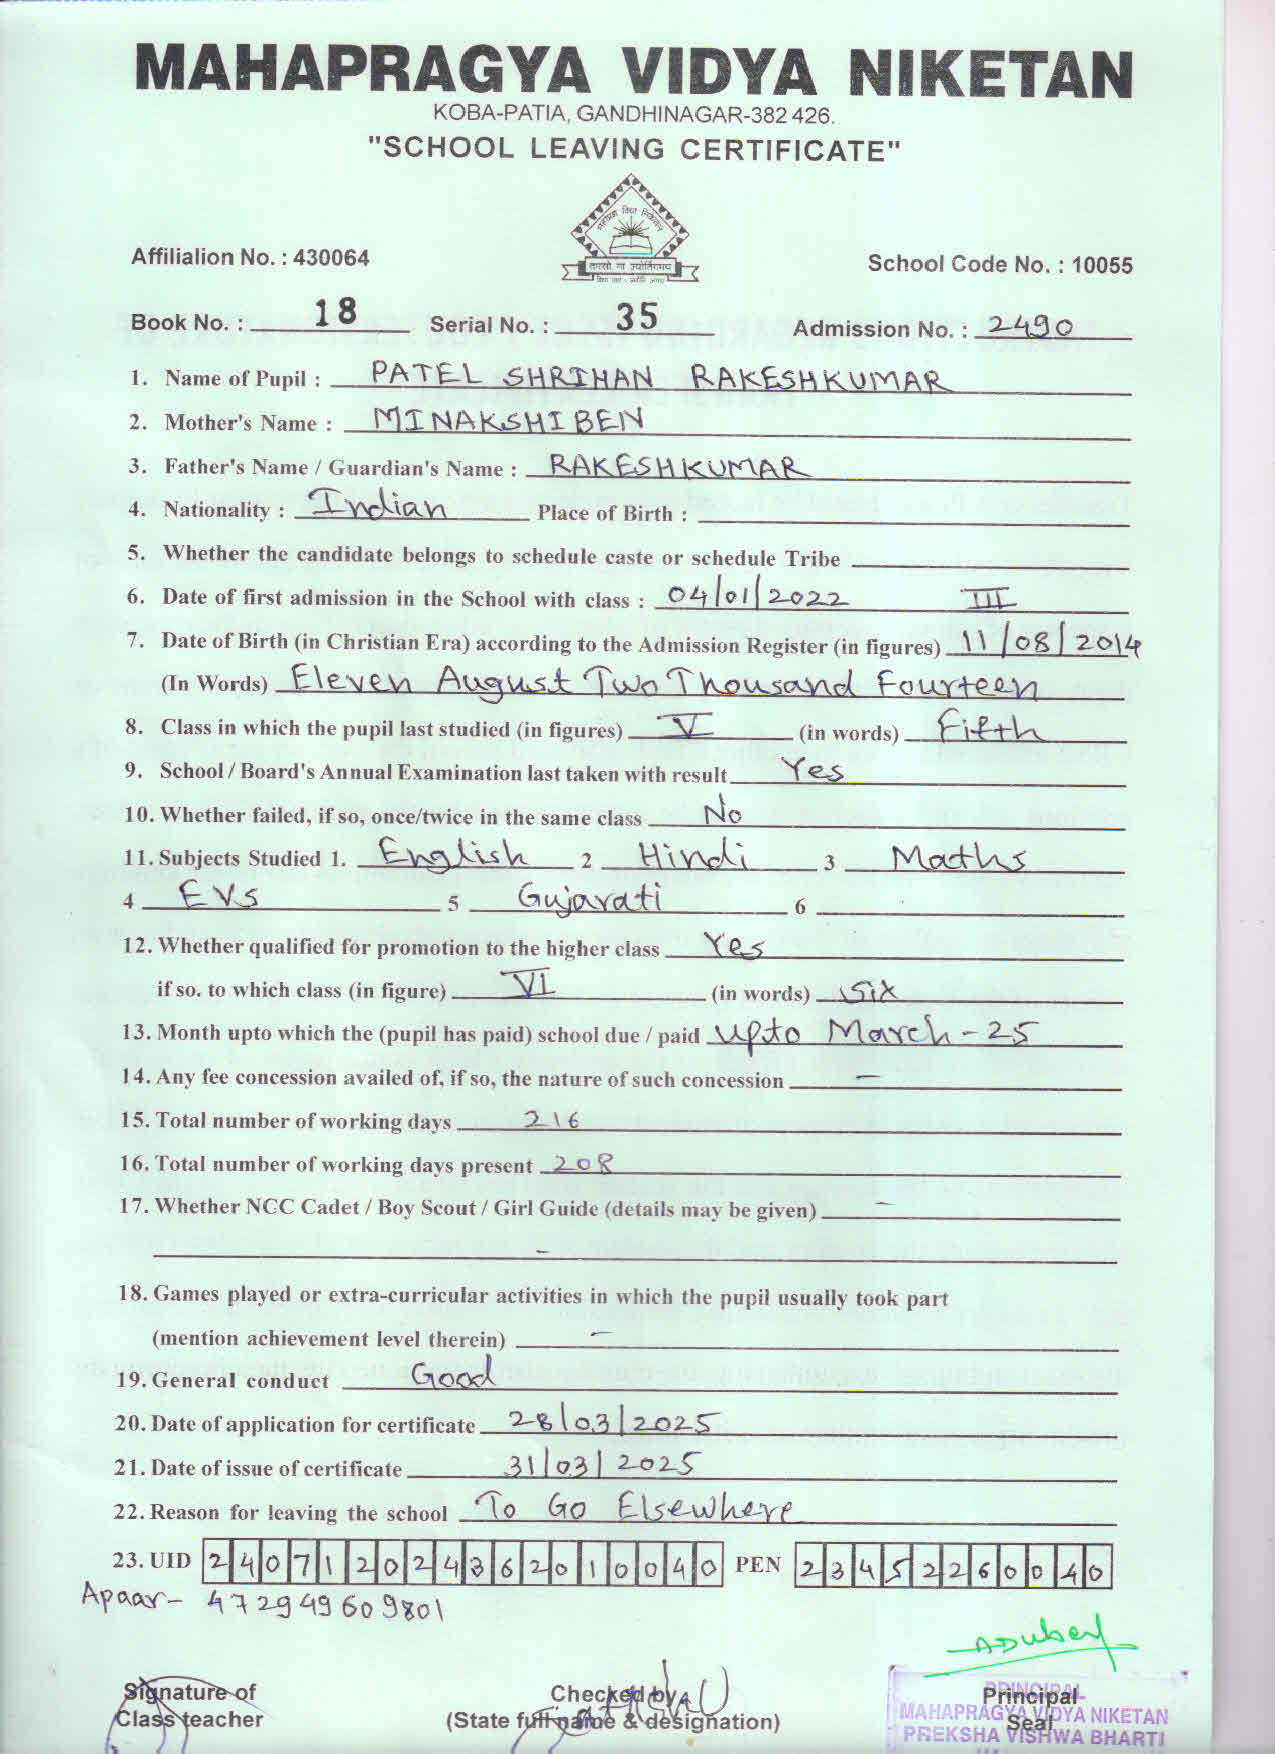 MAHAPRAGYA VIDYA NIKETAN
KOBA-PATIA, GANDHINAGAR-382 426.
"SCHOOL LEAVING CERTIFICATE"
महाप्रज्ञ विद्या निकेतन
तमसो मा ज्योतिर्गमय
Affilialion No. : 430064
School Code No. : 10055
Book No. : 18 Serial No. : 35 Admission No. : 2490
1. Name of Pupil : PATEL SHRIHAN RAKESHKUMAR
2. Mother's Name : MINAKSHIBEN
3. Father's Name / Guardian's Name : RAKESHKUMAR
4. Nationality : Indian Place of Birth :
5. Whether the candidate belongs to schedule caste or schedule Tribe
6. Date of first admission in the School with class : 04/01/2022 III
7. Date of Birth (in Christian Era) according to the Admission Register (in figures) 11/08/2014
(In Words) Eleven August Two Thousand Fourteen
8. Class in which the pupil last studied (in figures) V (in words) Fifth
9. School / Board's Annual Examination last taken with result Yes
10. Whether failed, if so, once/twice in the same class No
11. Subjects Studied 1. English 2 Hindi 3 Maths
4 EVS 5 Gujarati 6
12. Whether qualified for promotion to the higher class Yes
if so. to which class (in figure) VI (in words) Six
13. Month upto which the (pupil has paid) school due / paid upto March-25
14. Any fee concession availed of, if so, the nature of such concession —
15. Total number of working days 216
16. Total number of working days present 208
17. Whether NCC Cadet / Boy Scout / Girl Guide (details may be given) —
—
18. Games played or extra-curricular activities in which the pupil usually took part
(mention achievement level therein) —
19. General conduct Good
20. Date of application for certificate 28/03/2025
21. Date of issue of certificate 31/03/2025
22. Reason for leaving the school To Go Elsewhere
23. UID 240712024362010040 PEN 23452260040
Apaar- 472949609801
Signature of
Class teacher
Checked by
(State full name & designation)
Principal
Seal
PRINCIPAL
MAHAPRAGYA VIDYA NIKETAN
PREKSHA VISHWA BHARTI